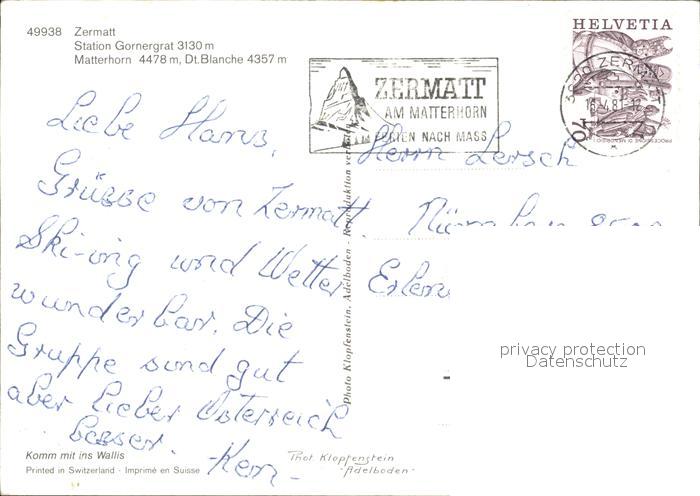 49938 Zermatt
Station Gornergrat 3130 m
Matterhorn 4478 m, Dt.Blanche 4357 m
HELVETIA
70
ZERMATT
AM MATTERHORN
FERIEN NACH MASS
ZERMATT
Liebe Hans,
Grüsse von Zermatt.
Ski-ing und Wetter
wunderbar. Die
Gruppe sind gut
aber lieber Österreich
besser. -Ken-
Herrn Lersch
Photo Klopfenstein, Adelboden - Reproduktion verboten
Komm mit ins Wallis
Printed in Switzerland - Imprimé en Suisse
Phot. Klopfenstein
-Adelboden-
privacy protection
Datenschutz